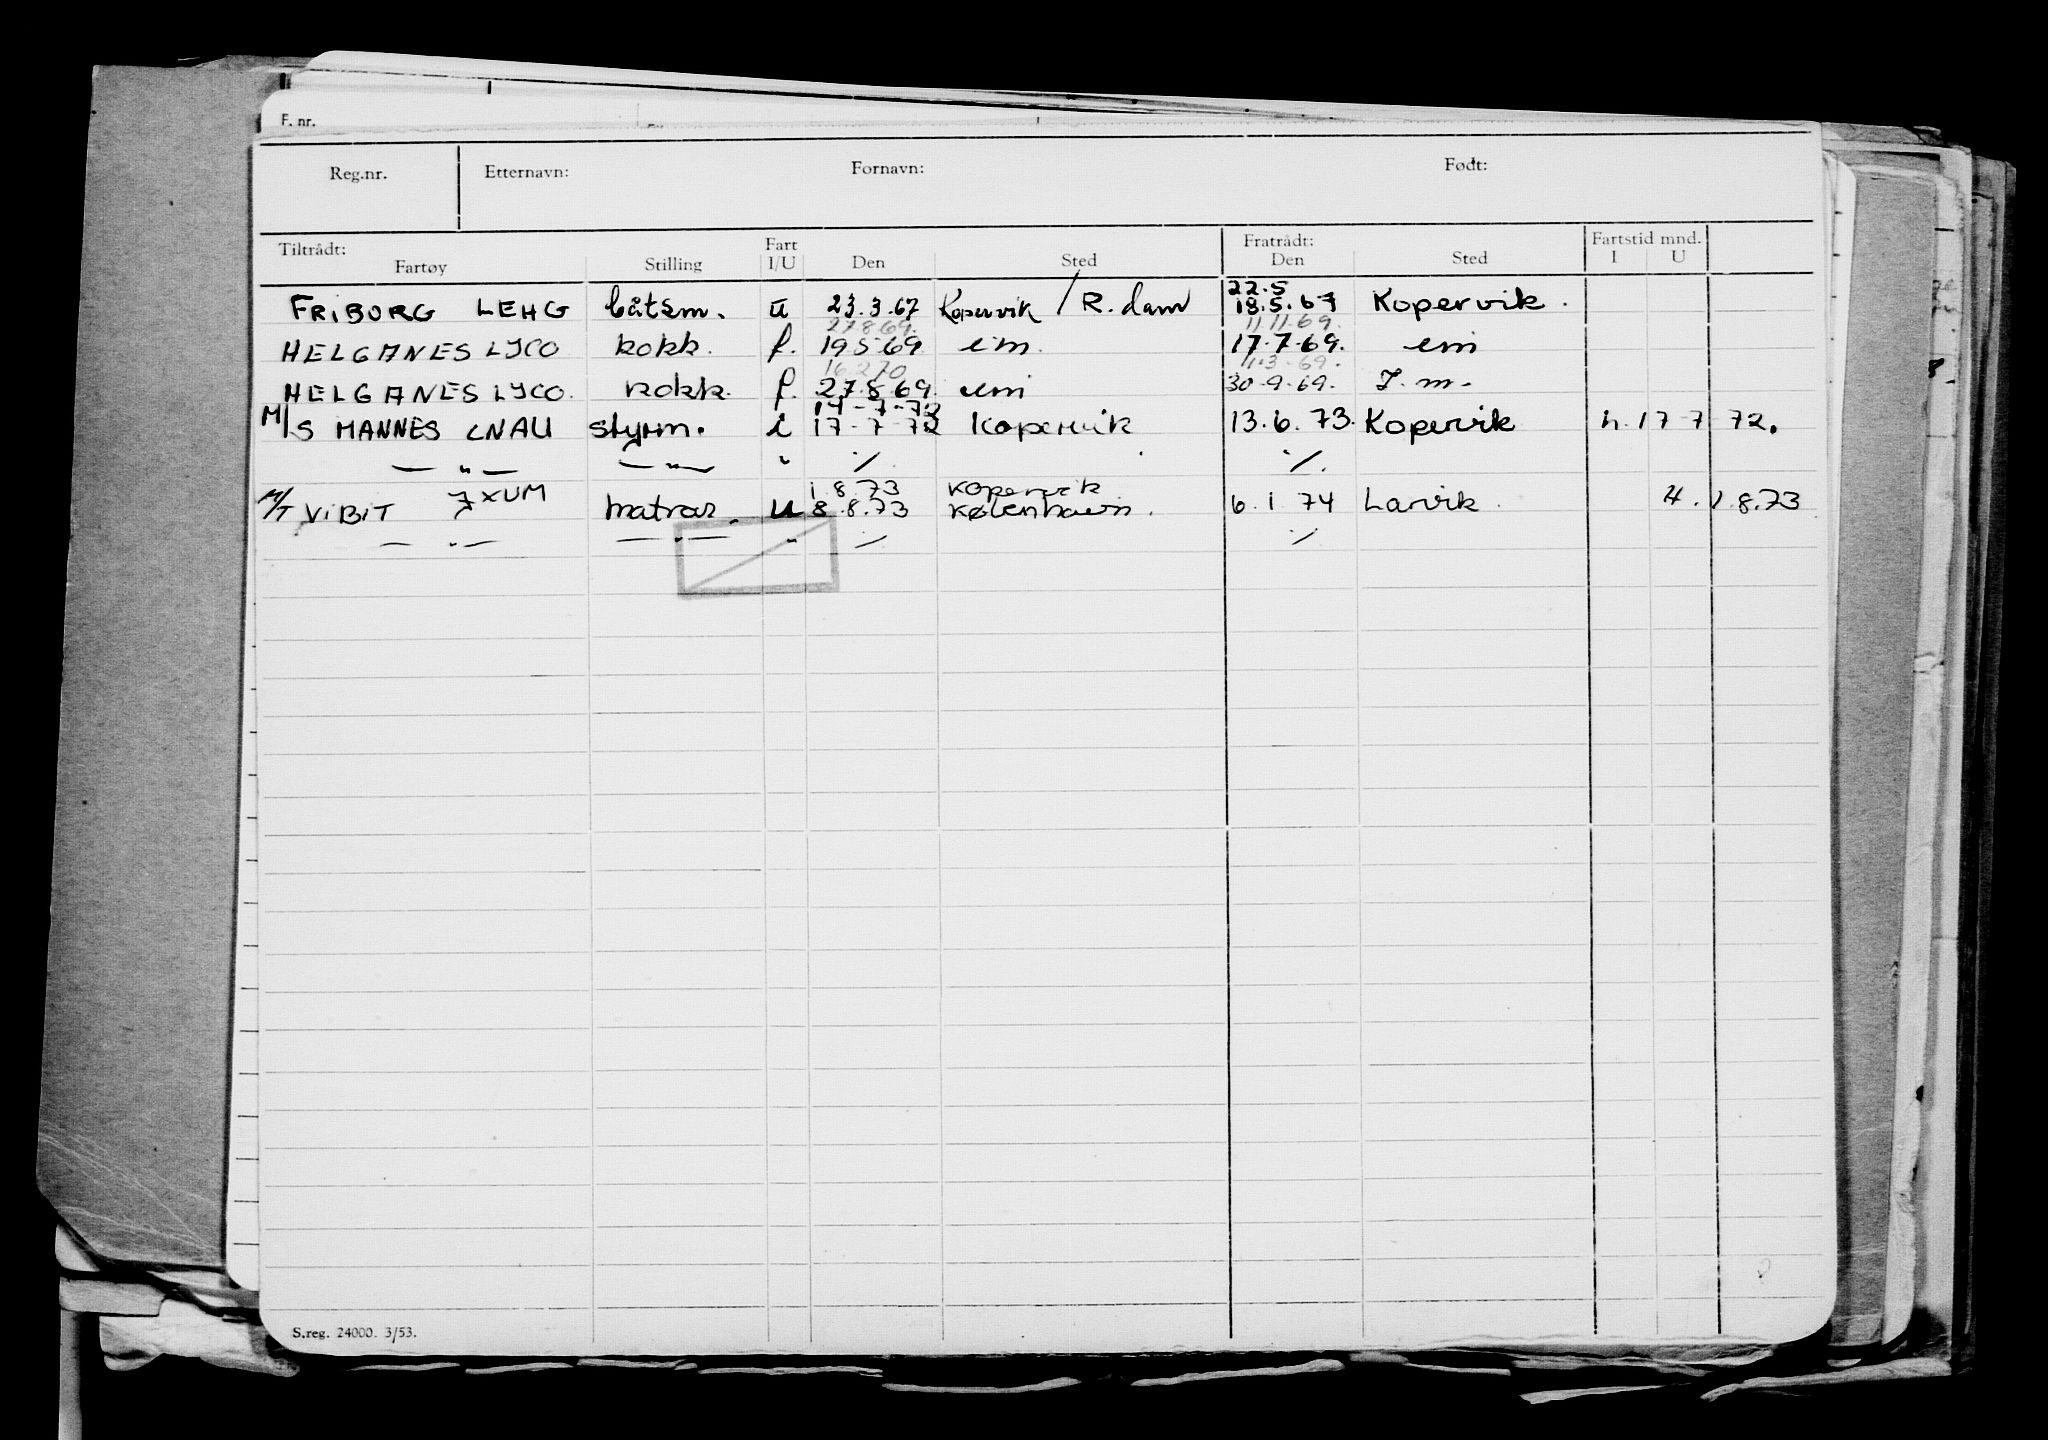 F. nr.
Reg.nr. Etternavn: Fornavn: Født:
Tiltrådt: Fart Fratrådt: Fartstid mnd.
Fartøy Stilling I/U Den Sted Den Sted I U
22.5
FRIBORG LEHG båtsm. U 23.3.67 Kopervik / R.dam 18.5.67 Kopervik.
27.8.69. 11.11.69.
HELGANES LJCO kokk. f. 19 5 69 em. 17.7.69. em
16.2.70 1.3.69.
HELGANES LJCO. kokk. f. 27.8.69. em 30.9.69. J.m.
14-7-72
M/S MANNES LNAU styrm. i 17-7-72 Kopervik 13.6.73. Kopervik h. 17 7 72.
— " — — " — " ./. ./.
1.8.73 Kopervik
M/T VIBIT JXUM matros. U 8.8.73 København. 6.1.74 Larvik. H. 1.8.73
— " — — " — " ./. ./.
S.reg. 24000. 3/53.